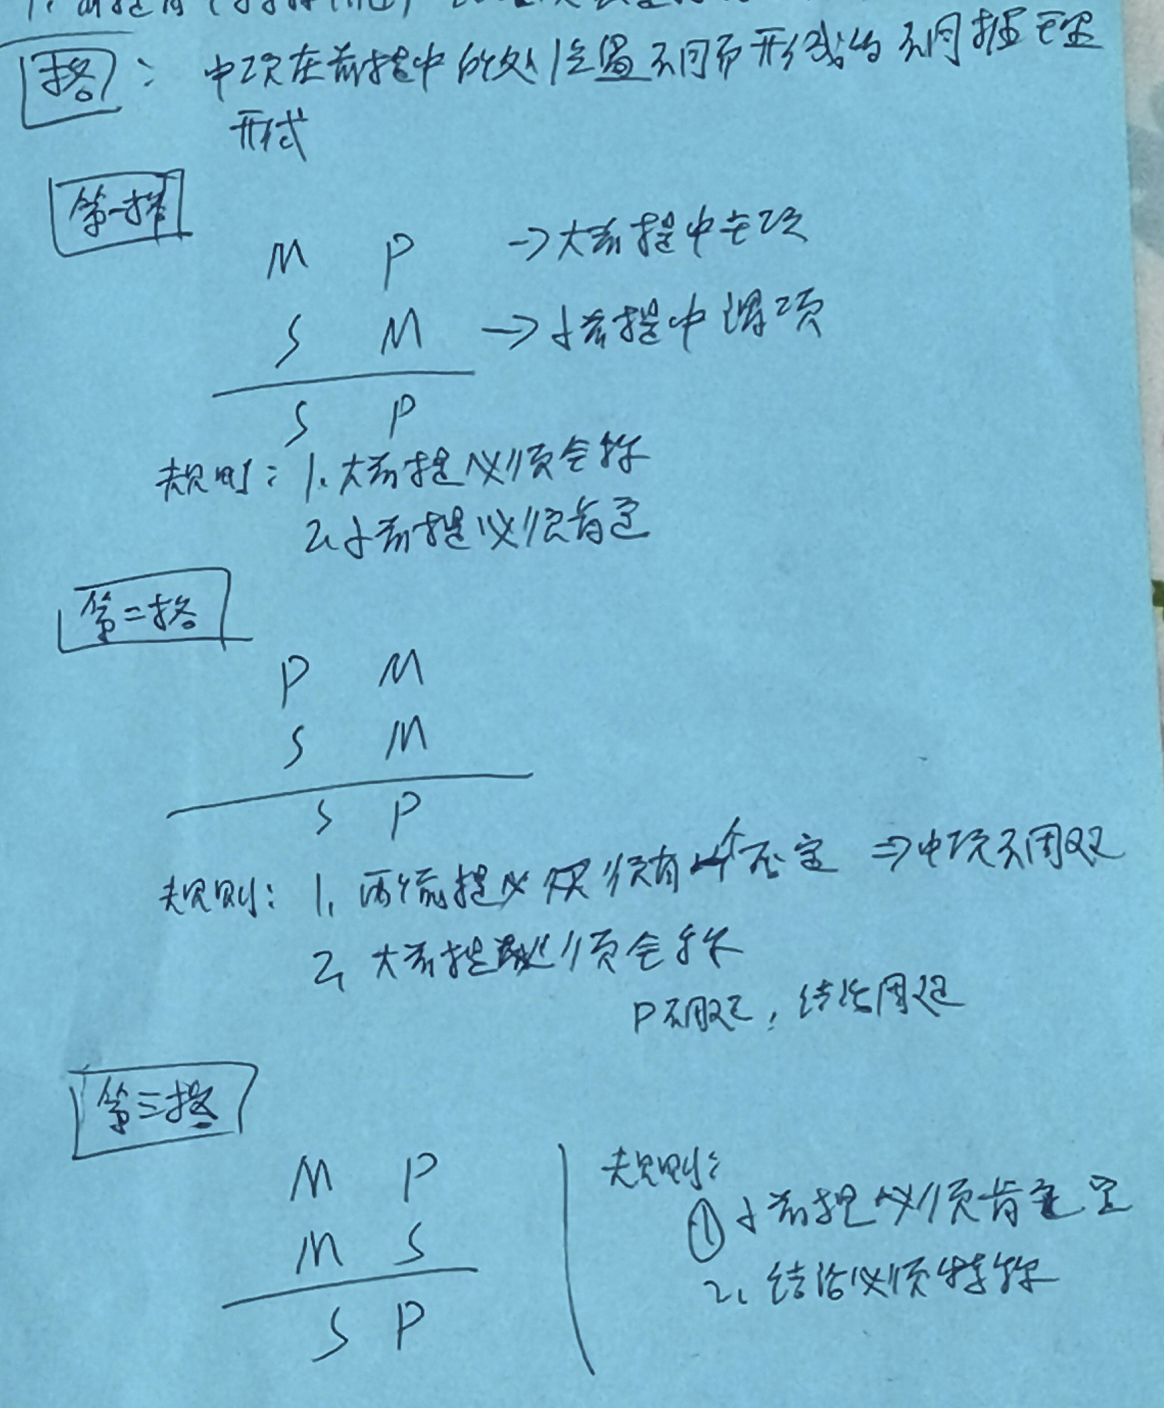 格: 中项在前提中所处位置不同而形成的不同推理
形式
第一格
M P →大前提中主项
S M →小前提中谓项
S P
规则: 1.大前提必须全称
2.小前提必须肯定
第二格
P M
S M
S P
规则: 1. 两前提必须有一个否定 ⇒中项不周延
2. 大前提必须全称
P不周延, 结论周延
第三格
M P
M S
S P
规则:
① 小前提必须肯定
2. 结论必须特称